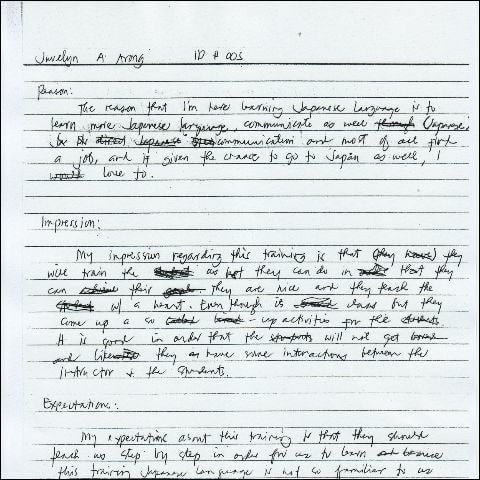 Juvelyn A. Arong ID # 005
Reason:
The reason that I'm here learning Japanese language is to
learn more Japanese language, communicate as well though (Japanese,
communication and most of all find
a job, and if given the chance to go to Japan as well, I
would love to.
Impression:
My impression regarding this training is that (they have) they
will train the as they can do in that they
can achieve their goals. they are nice and they teach the
students w/ a heart. Even though is class but they
come up a so - up activities for the students.
It is good in order that the students will not get bored
and they as have some interactions between the
instructor & the students.
Expectations:
My expectations about this training is that they should
teach us step by step in order for us to learn and because
this training Japanese Language is not so familiar to us